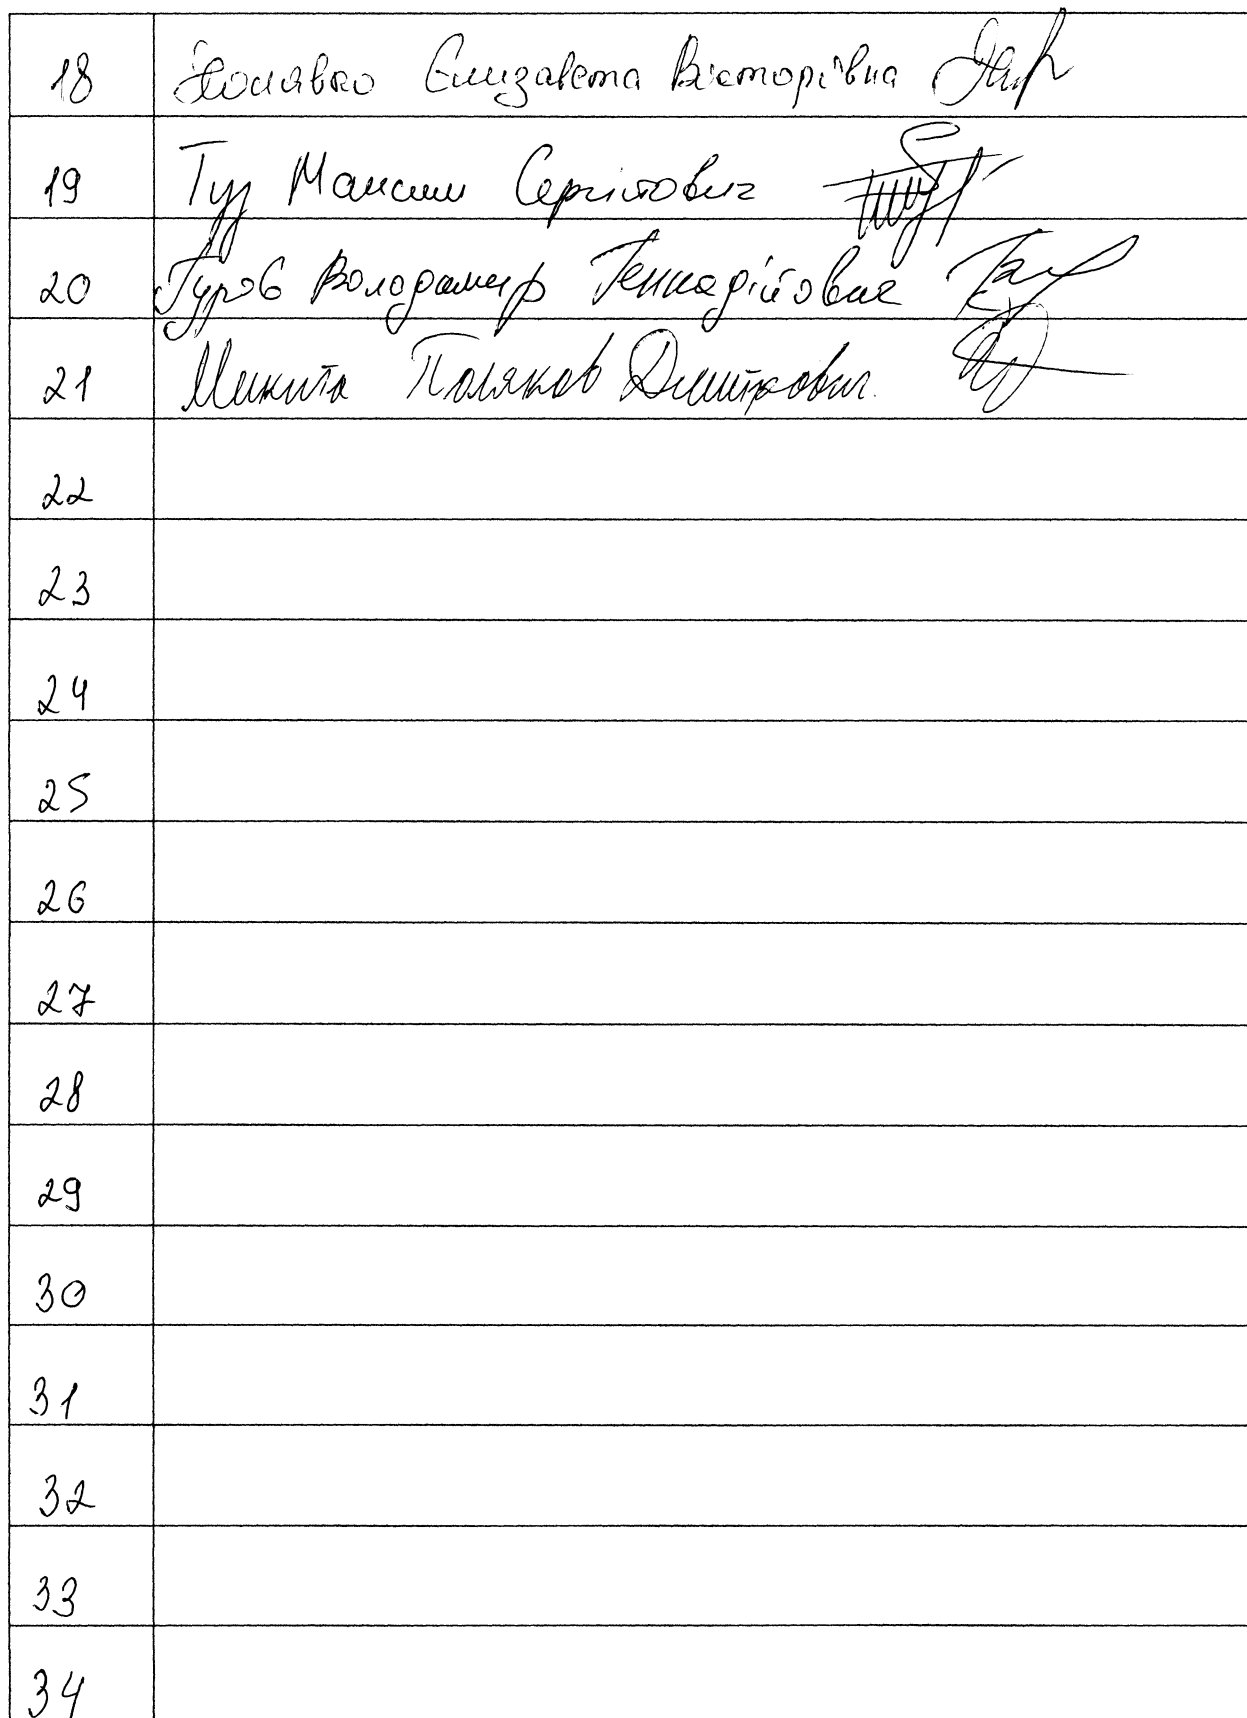 18 Єлизавета Вікторівна
19 Туз Максим Сергійович
20 Гуров Володимир Геннадійович
21 Микита Поляков Дмитрович.
22
23
24
25
26
27
28
29
30
31
32
33
34